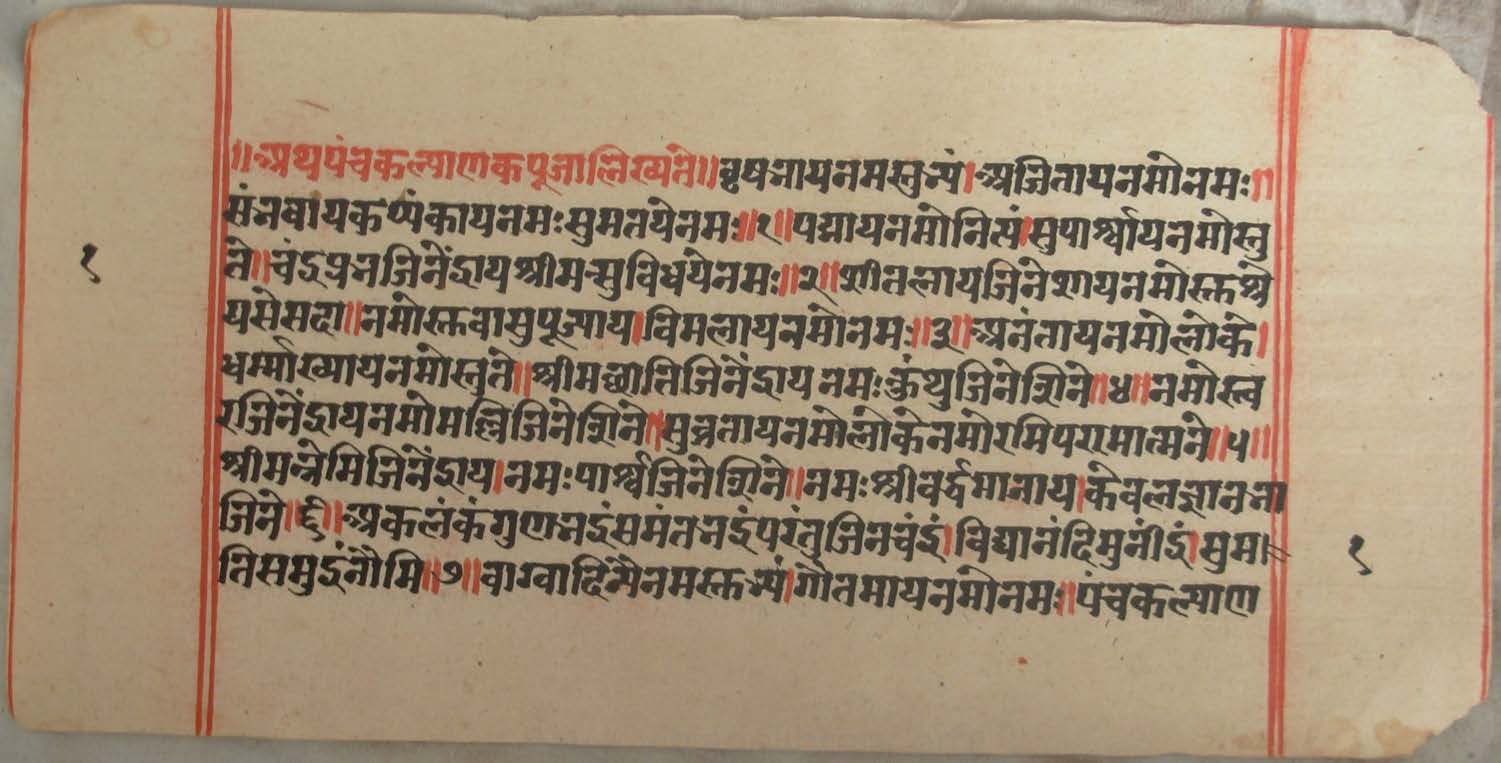 ॥अथपंचकल्याणकपूजालिख्यते॥वृषभायनमस्तुभ्यं।अजितायनमोनमः॥
संभवायकप्पंकायनमःसुमतयेनमः॥१॥पद्मायनमोनित्यं।सुपार्श्वायनमोस्तु
ते॥चंद्रप्रभजिनेंद्रायश्रीमत्सुविधयेनमः॥२॥शीतलायजिनेशायनमोस्तश्रे
यसेसदा॥नमोस्तवासुपूज्याय।विमलायनमोनमः॥३॥अनंतायनमोलोके।
धर्म्माख्यायनमोस्तुते॥श्रीमछांतिजिनेंद्रायनमःकुंथुजिनेशिने॥४॥नमोस्त्व
रजिनेंद्रायनमोमल्लिजिनेशिने॥सुव्रतायनमोलोकेनमोरमिपरामात्मने॥५॥
श्रीमन्नेमिजिनेंद्राय।नमःपार्श्वजिनेशिने॥नमःश्रीवर्द्धमानाय।केवलज्ञानभा
जिने॥६॥अकलंकंगुणभद्रंसमंतभद्रंपरंतुजिनचंद्रं।विद्यानंदिमुनींद्रं।सुमा
तिसमुद्रंनौमि॥७॥वाग्वादिंन्यैनमस्तभ्यं।गौतमायनमोनमः॥पंचकल्याण
१
१